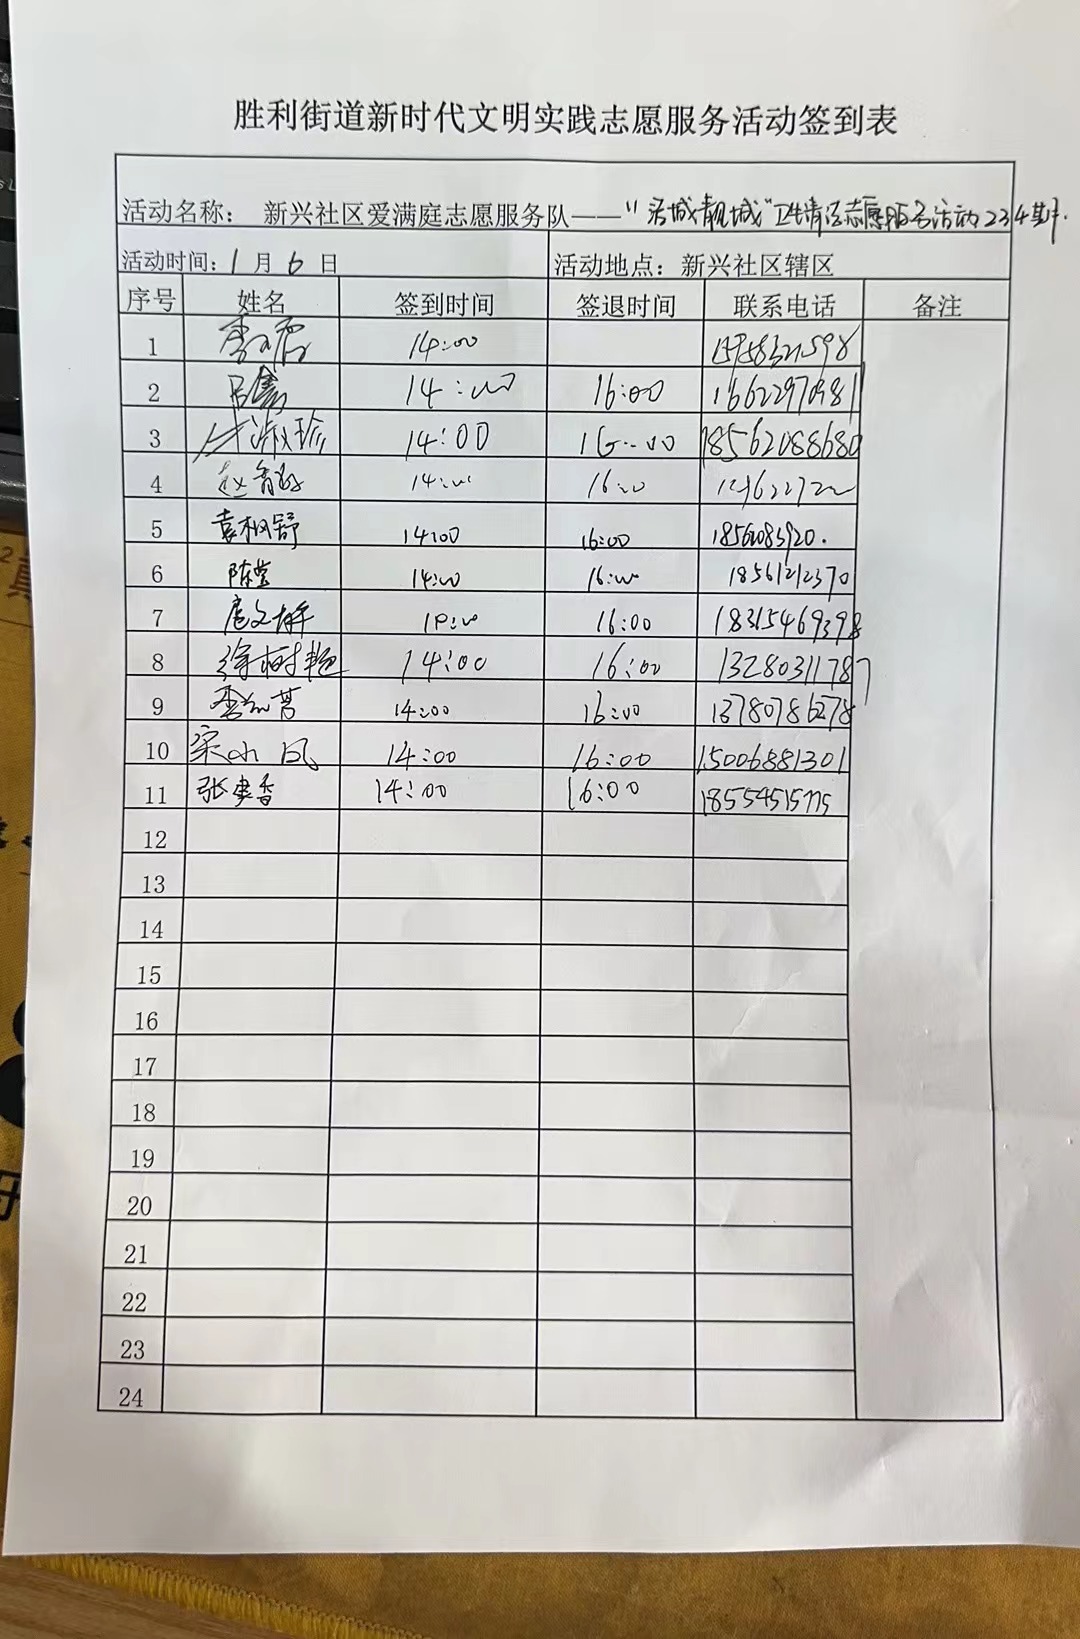 胜利街道新时代文明实践志愿服务活动签到表
活动名称： 新兴社区爱满庭志愿服务队——“洁城靓城”卫生清洁志愿服务活动234期.
活动时间：1 月 6 日 活动地点：新兴社区辖区
序号 姓名 签到时间 签退时间 联系电话 备注
1 14:00
2 吕鑫 14:00 16:00 16622970981
3 牛淑珍 14:00 16:00 18562088680
4 14:00 16:00
5 袁枫舒 14:00 16:00
6 陈莹 14:00 16:00 18561212370
7 16:00 18315469398
8 徐树艳 14:00 16:00 13280311787
9 14:00 16:00 13780786278
10 宋小凤 14:00 16:00 15006881301
11 张建香 14:00 16:00 18554515775
12
13
14
15
16
17
18
19
20
21
22
23
24